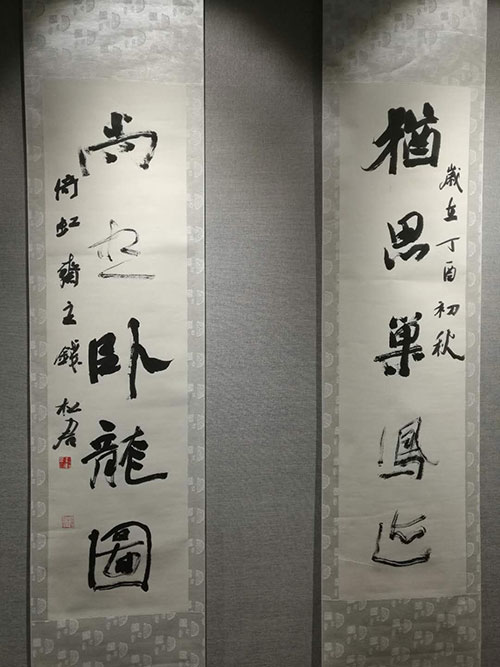 猶思巢鳳迹
歲在丁酉初秋
尚卧龍圖
倚虹齋主錢松君